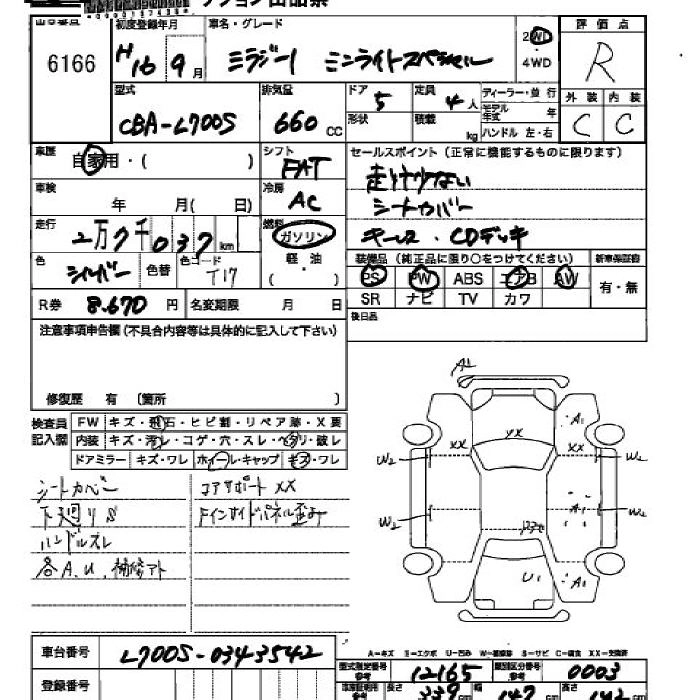 出品番号 初度登録年月 車名・グレード 2WD 評価点
6166 H16 9月 ミラジーノ ミンライトスペシャル 4WD R
型式 排気量 ドア 5 定員 4人 ディーラー・並行 外装 内装
CBA-L700S 660 CC 形状 積載 kg モデル年式 年 C C
ハンドル 左・右
車歴 自家用・( ) シフト FAT セールスポイント (正常に機能するものに限ります)
車検 年 月( 日) 冷房 AC 走行少ない
シートカバー
走行 2万7千037km 燃料 ガソリン キーレス・CDデッキ
色 シルバー 色替 色コード T17 軽・油 ( )
装備品 (純正品に限り○をつけてください) 新車保証書
PS PW ABS エアB AW 有・無
SR ナビ TV カワ
R券 8.670 円 名変期限 月 日 後日品
注意事項申告欄 (不具合内容等は具体的に記入して下さい)
修復歴 有 〔箇所 〕
検査員記入欄 FW キズ・飛石・ヒビ割・リペア跡・X要
内装 キズ・汚レ・コゲ・穴・スレ・ヘタリ・破レ
ドアミラー キズ・ワレ ホイール・キャップ キズ・ワレ
シートカバー コアサポート XX
下廻りS Fインサイドパネル歪み
ハンドルスレ
各A.U.補修アト
A1
A1
XX YX XX
W2 W2
A1
W2 W2
U1 A1
A-キズ E-エクボ U-凹み W-補修跡 S-サビ C-腐食 XX-交換済
車台番号 L700S-0343542 型式指定番号 12165 類別区分番号 0003
登録番号 長さ 339 cm 幅 147 cm 高さ 142 cm